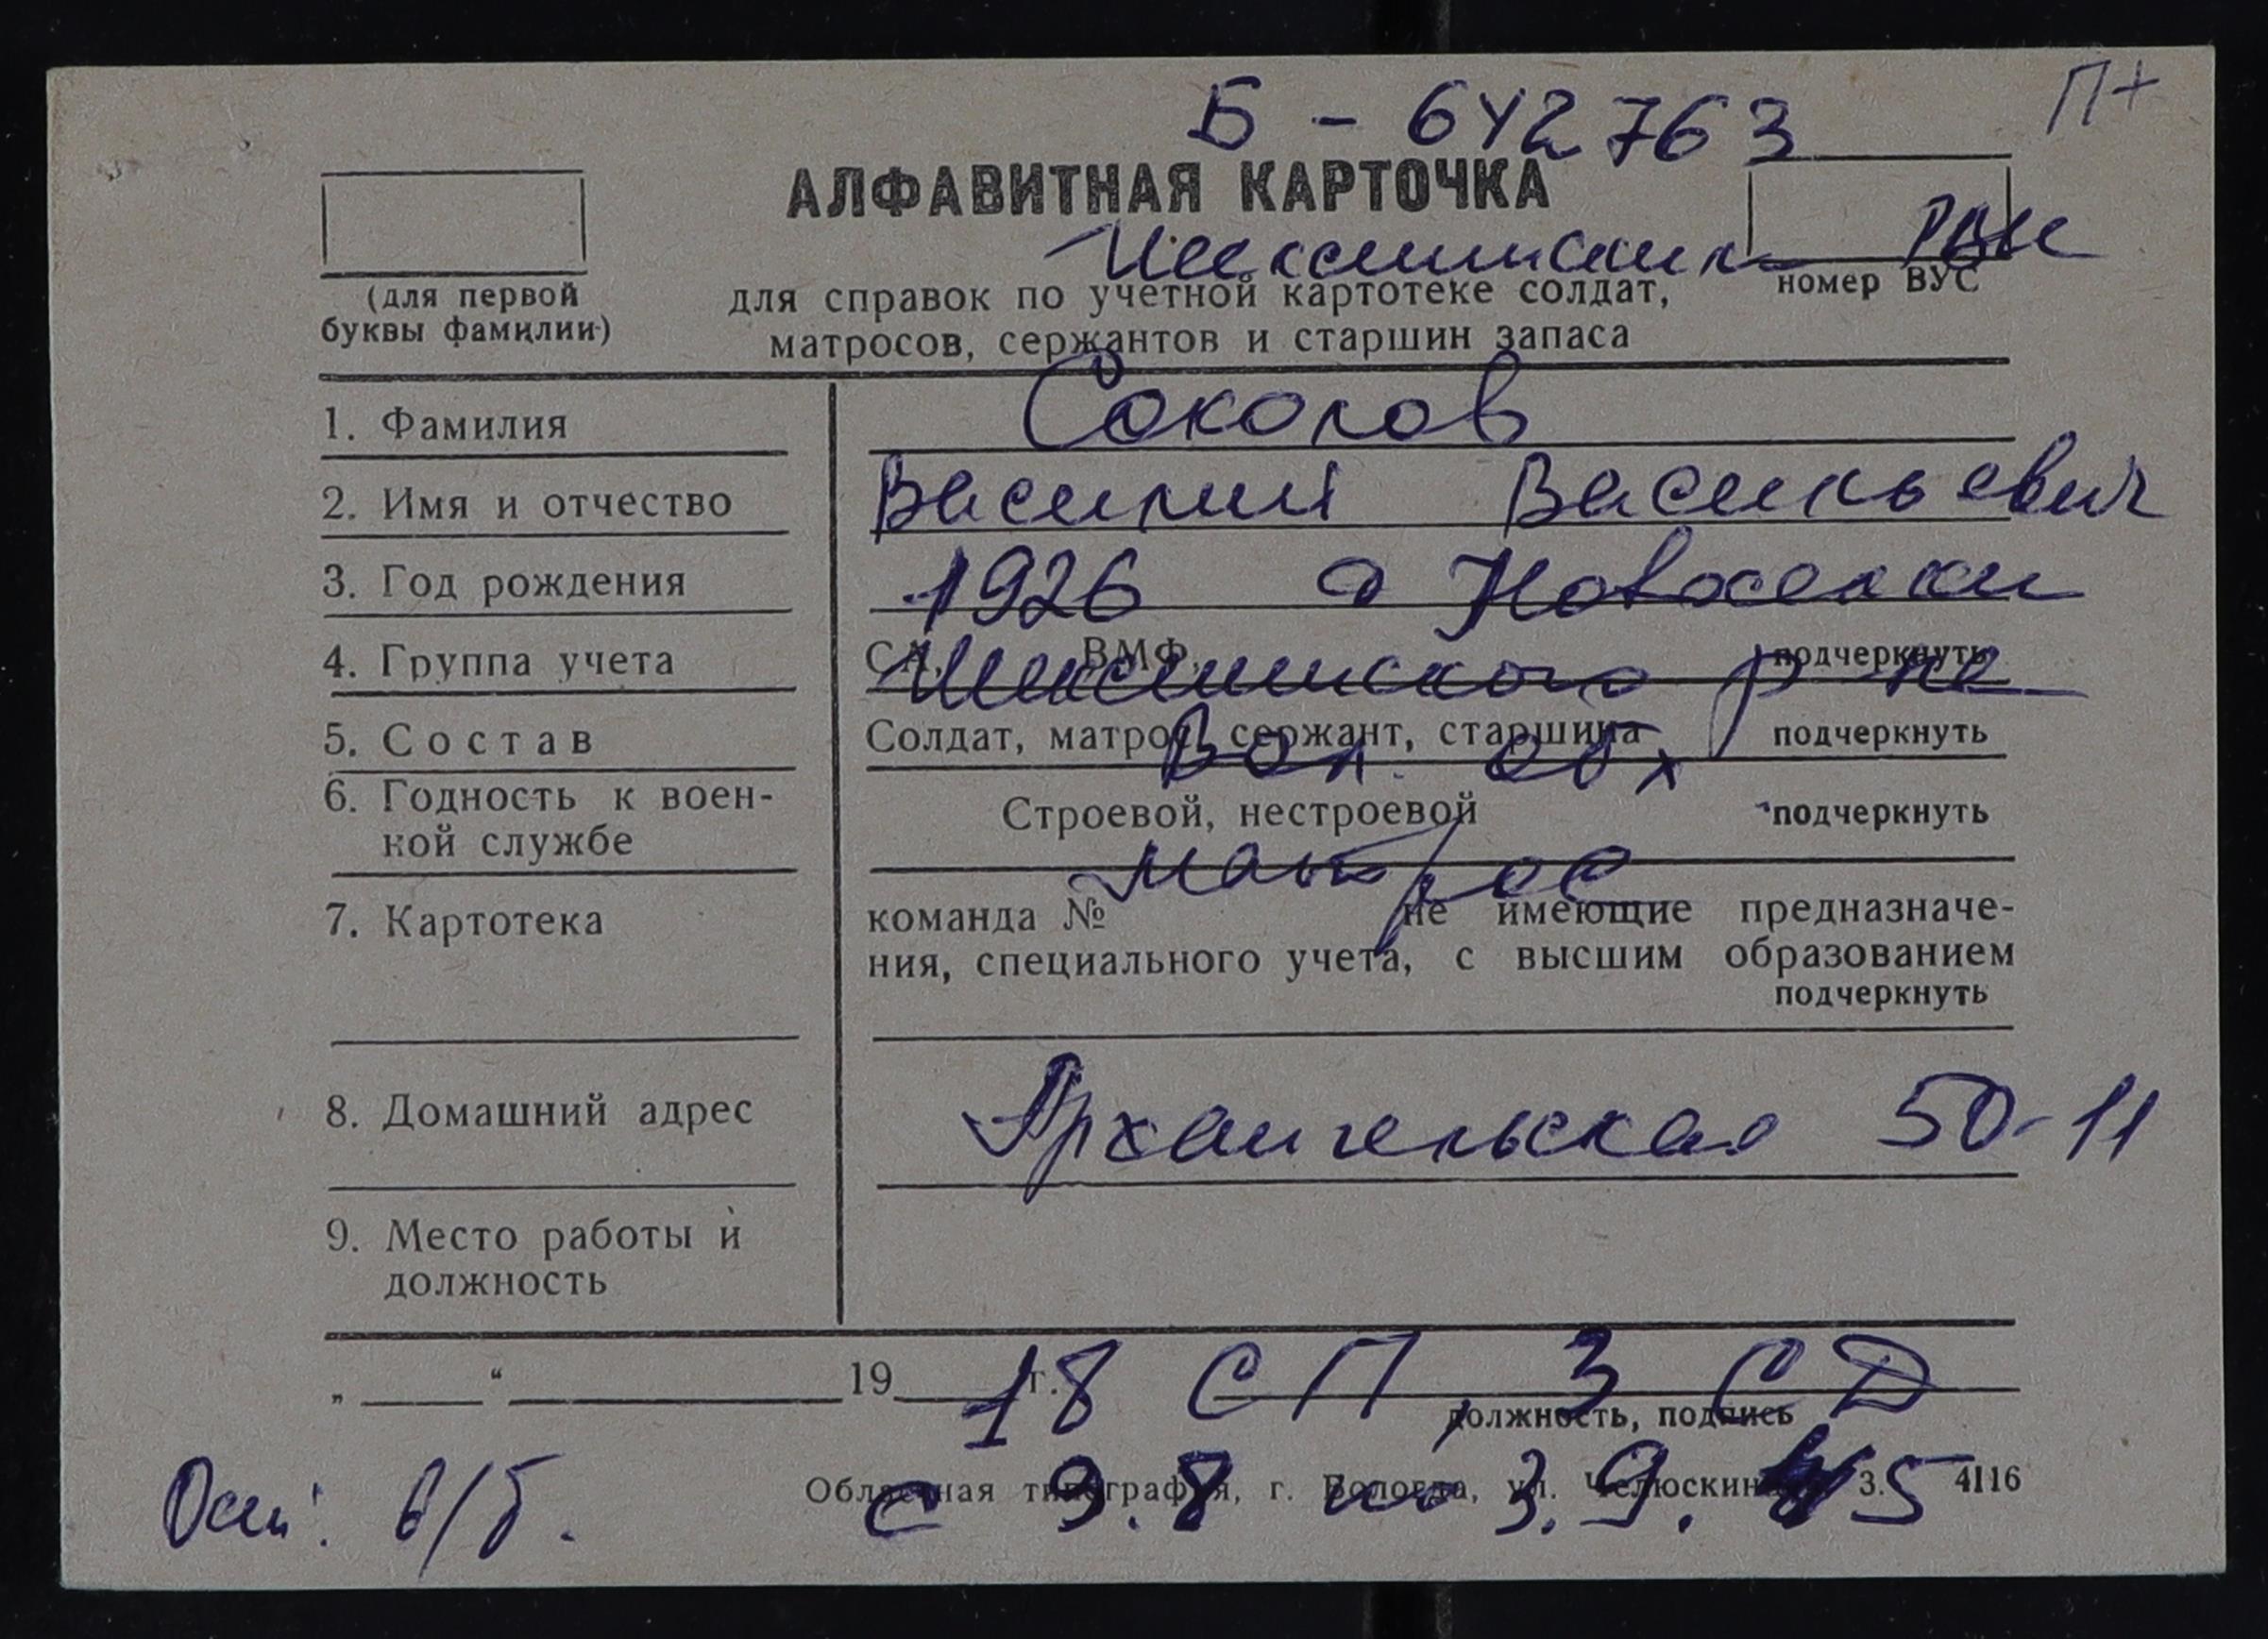 П+
Б - 642763
АЛФАВИТНАЯ КАРТОЧКА
Шекснинский РВК
(для первой
буквы фамилии)
для справок по учетной картотеке солдат,
матросов, сержантов и старшин запаса
номер ВУС
1. Фамилия Соколов
2. Имя и отчество Василий Васильевич
3. Год рождения 1926 д Новоселки
4. Группа учета СА, ВМФ, подчеркнуть
Шекснинского р на
5. Состав Солдат, матрос, сержант, старшина подчеркнуть
Вол. обл
6. Годность к воен-
ной службе Строевой, нестроевой подчеркнуть
матрос
7. Картотека команда № не имеющие предназначе-
ния, специального учета, с высшим образованием
подчеркнуть
8. Домашний адрес Архангельская 50-11
9. Место работы и
должность
„ “ 19 г. 18 СП, 3 СД
должность, подпись
Осн: в/б. с 9.8 по 3.9.45
Областная типография, г. Вологда, ул. Челюскинцев, 3. 4116